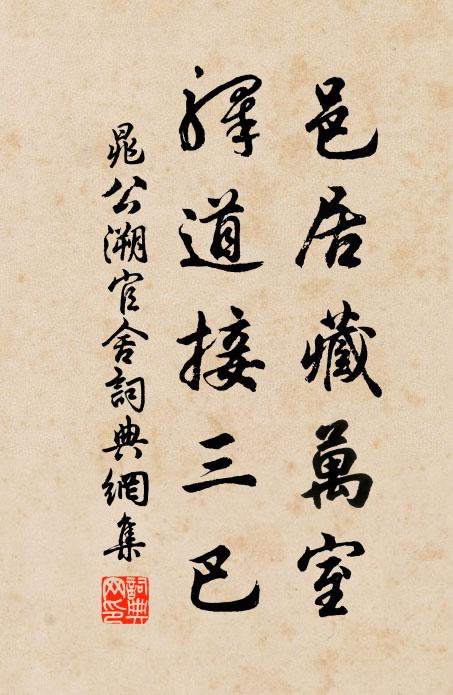 邑居藏萬室
驛道接三巴
晁公溯官舍詞典網集
詞典網印